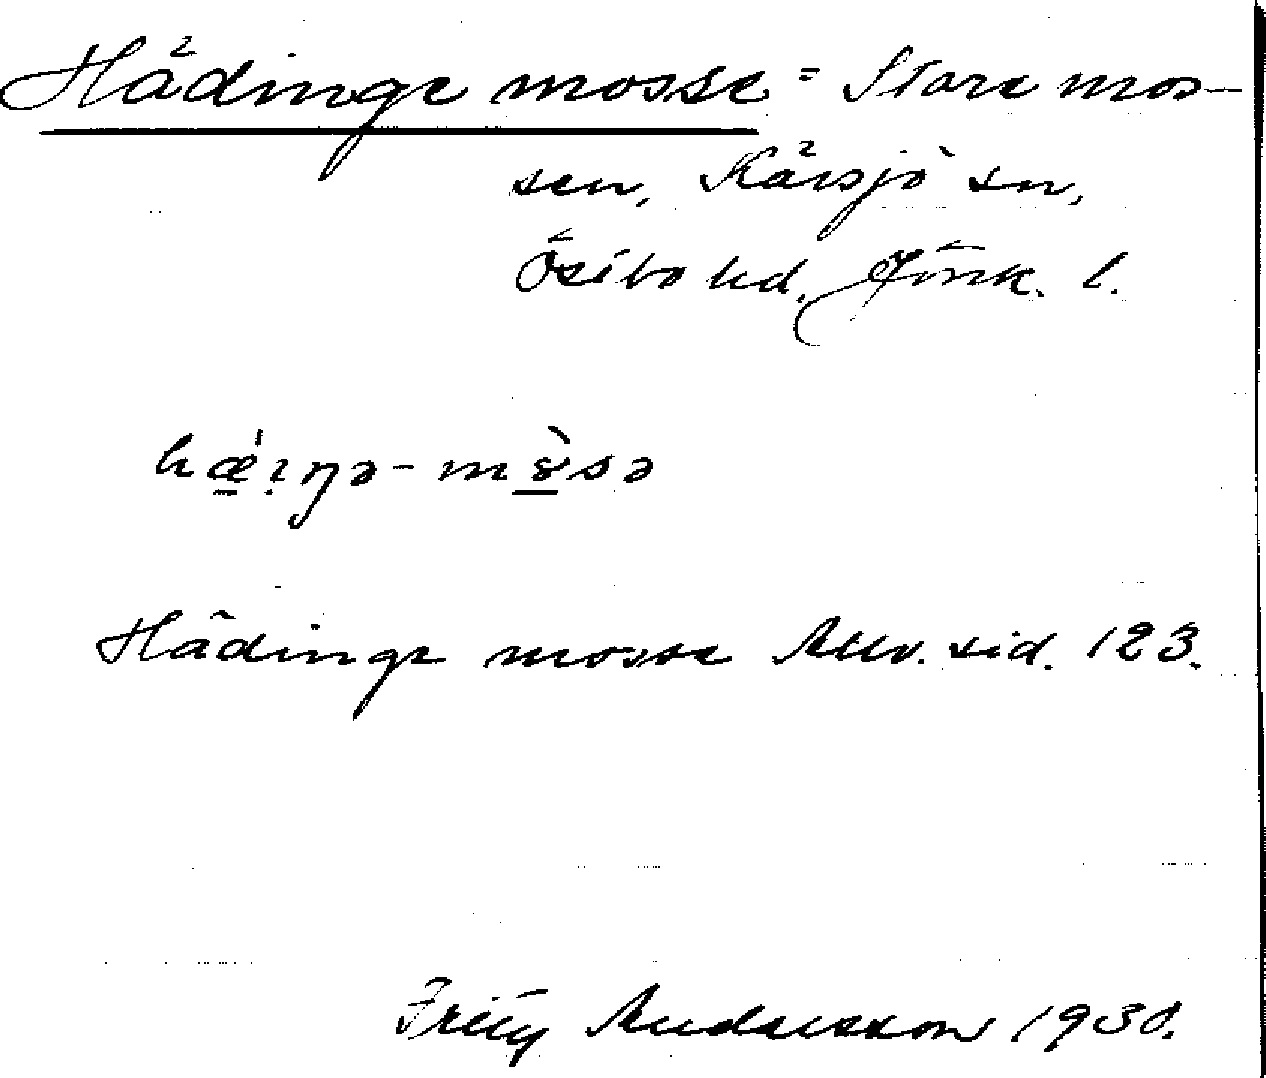 Hådinge mosse = Store mos-
sen, Kävsjö sn,
Östbo hd, Jönk. l.
hǽ̱ı̣ŋə-mɤ̱̀sə
Hådinge mosse Allv. sid. 123.
Andersson 1930.